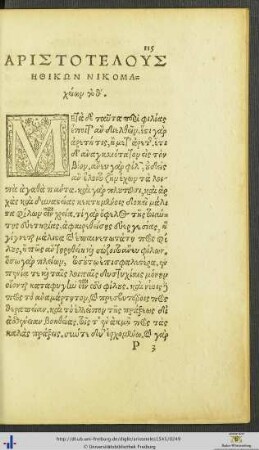 115
ΑΡΙΣΤΟΤΕΛΟΥΣ
ΗΘΙΚΩΝ ΝΙΚΟΜΑ=
χείων
Μ Ετὰ δὲ ταῦτα περὶ φιλίας
ἕποιτ' ἂν διελθεῖν. ἔστι γὰρ
ἀρετή τις, ἢ μετ' ἀρετῆς. ἔτι
δ' ἀναγκαιότατον εἰς τὸν
βίον. ἄνευ γὰρ φίλων οὐδεὶς
ἂν ἕλοιτο ζῆν ἔχων τὰ λοι
πὰ ἀγαθὰ πάντα. καὶ γὰρ πλουτοῦσι, καὶ ἀρ
χὰς καὶ δυναστείας κεκτημένοις δοκεῖ μάλι
τα φίλων εἶναι χρεία. τί γὰρ ὄφελος τῆς τοιαύ
της εὐετηρίας, ἀφαιρεθείσης εὐεργεσίας, ἣ
γίγνεται μάλιστα καὶ ἐπαινετωτάτη πρὸς φί
λους. ἢ πῶς ἂν τηρηθείη καὶ σώζοιτο ἄνευ φίλων.
ὅσῳ γὰρ πλείων, τοσούτῳ ἐπισφαλεστέρα. ἐν
πενίᾳ τε καὶ ταῖς λοιπαῖς δυστυχίαις μόνην
οἴονται καταφυγὴν εἶναι τοὺς φίλους. καὶ νέοις
πρὸς τὸ ἀναμάρτητον, καὶ πρεσβυτέροις πρὸς
θεραπείαν, καὶ τὸ ἐλλεῖπον τῆς πράξεως δι'
ἀσθένειαν βοηθείας, τοῖς τ' ἐν ἀκμῇ πρὸς τὰς
καλὰς πράξεις. σύν τε δύ' ἐρχομένω. καὶ γὰρ
P 3
http://dl.ub.uni-freiburg.de/diglit/aristoteles1541/0249
© Universitätsbibliothek Freiburg